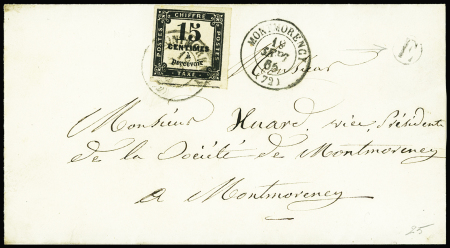 CHIFFRE
POSTES
POSTES
15
CENTIMES
à
percevoir
TAXE
MONTMORENCY
18
SEPT
65
(72)
Monsieur
Monsieur Huard, vice, Président
de la Société de Montmorency
a Montmorency
25